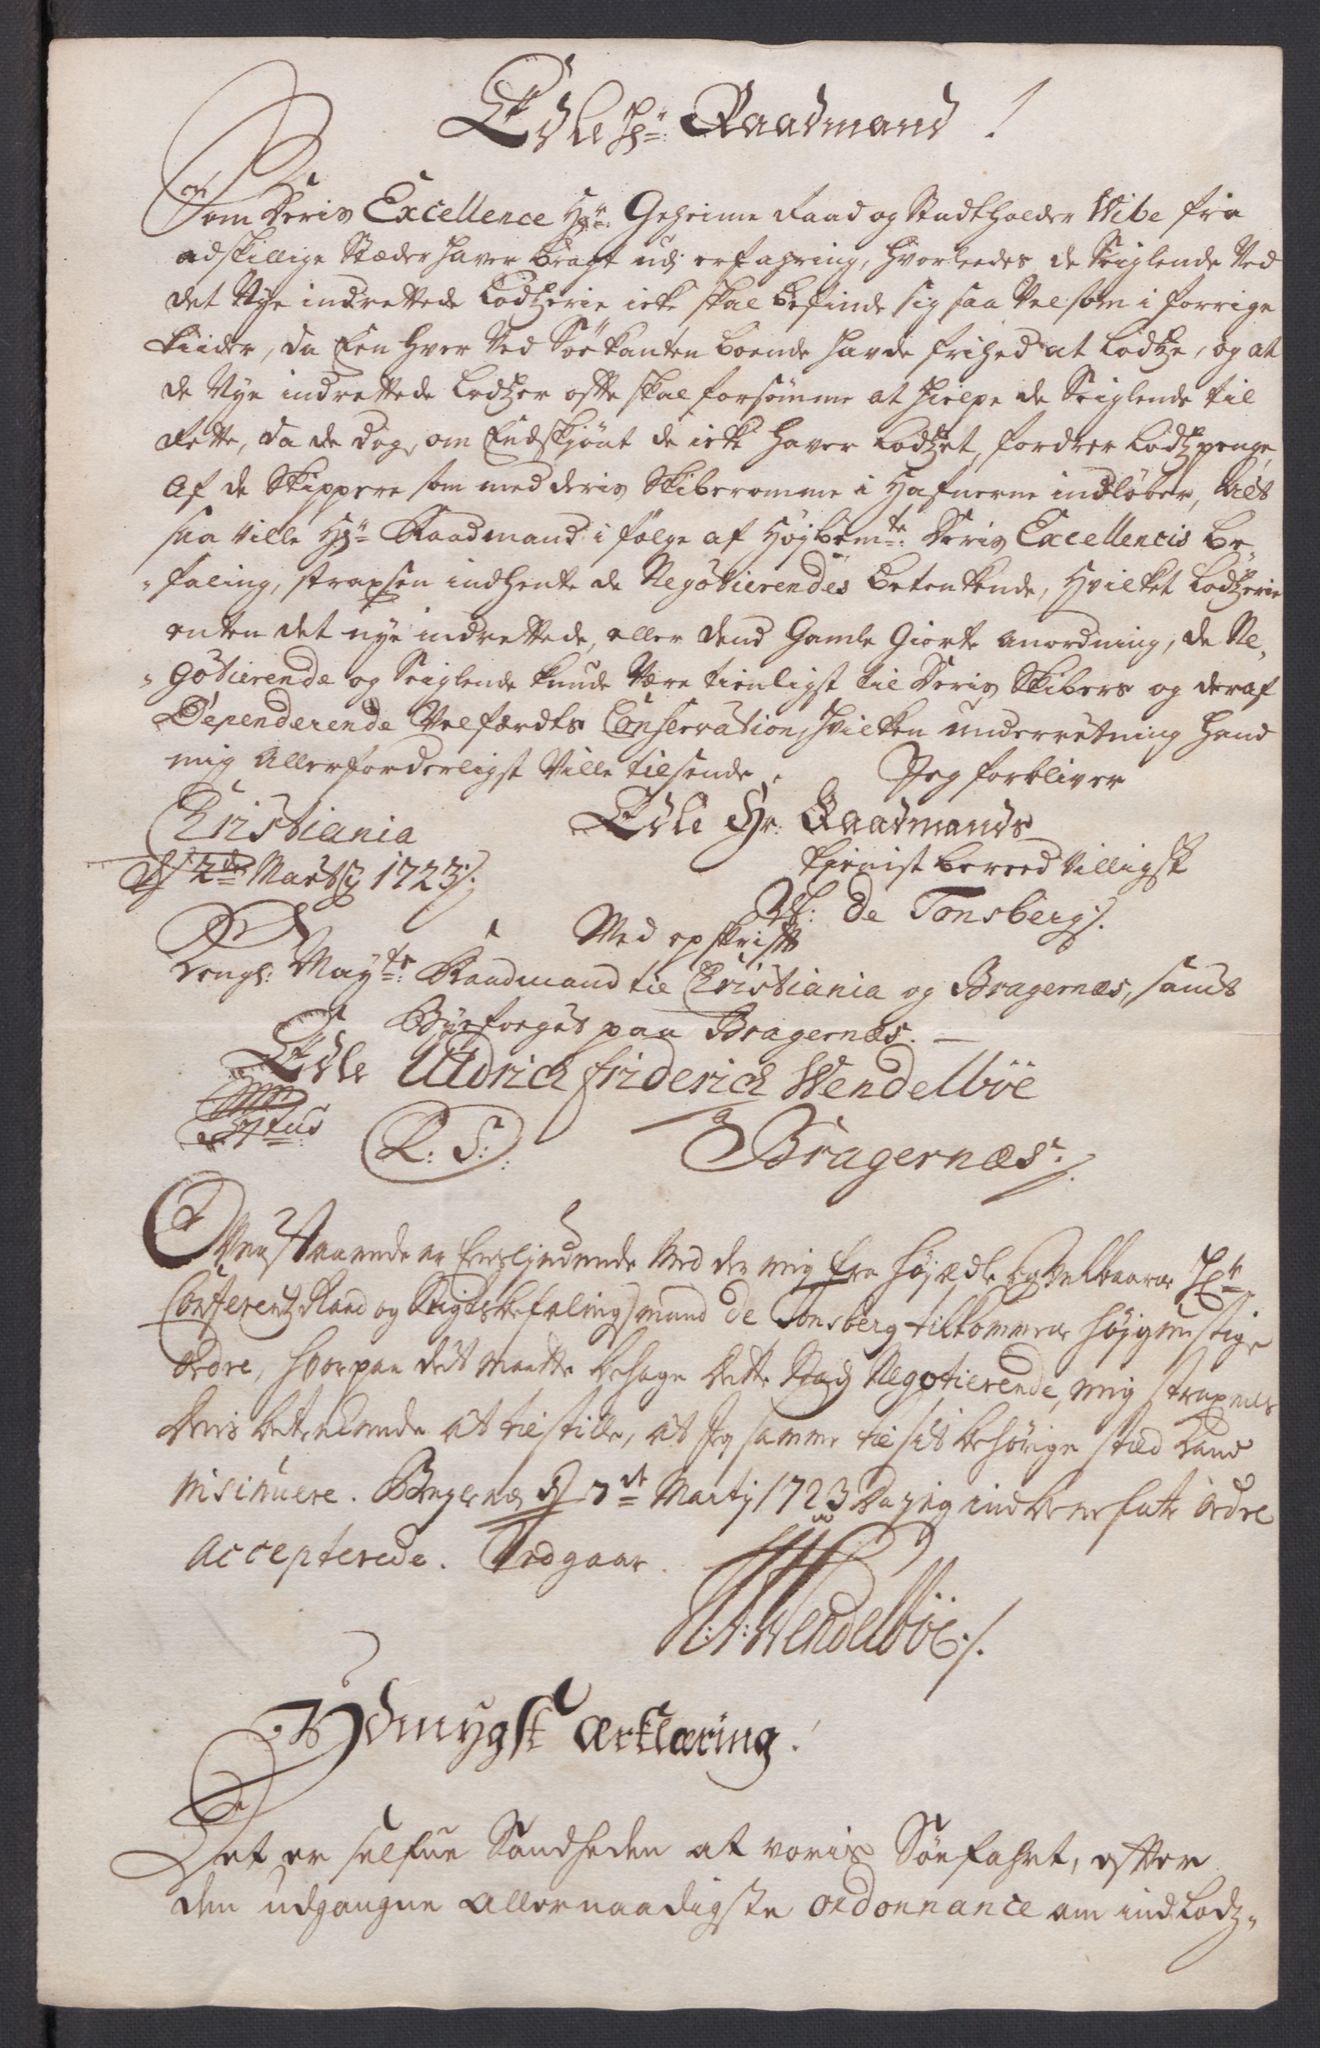 Edle Hr: Raadmand!
Som Deris Excellence Hr: Geheime Raad og Stadtholder Wibe fra
adskillige Stæder haver bragt udj erfahring, hvorleedes de Seiglende Ved
det Nye indrettede Lodtzerie icke skal befinde sig saa Vel som i forrige
tiider, da Een hver Ved Söekanten boende hafde frihed at Lodtze, og at
de Nye indrettede Lodtzer offte skal forsömme at hielpe de Seiglende til
Rette, da de dog, om Endskjönt de icke haver Lodtzet, fordrer Lodtzpenge,
Af de Skippere som med deris Skiberomme i Hafnerne indløber, Alt
saa Ville Hr Raadmand i fölge af Højbemte: Deris Excellencis be-
faling, strapsen indhente de Negotierendes betenkende, Hvilket Lodtzerie
enten det nye indrettede, eller dend Gamle Giorte Anordning, de Ne-
gotierende og Seiglende kunde Være tienligst til Deris Skibers og deraf
Dependerende Velfærdts Conservation, Hvilken underretning hand
mig Allerforderligst Ville tilsende, Jeg forbliver
Christiania Edle Hr: Raadmands
d 2de Martij 1723 /. tienist bereed Villigst
de Tonsberg /.
Med opskrifft
Kongl: Mayts: Raadmand til Christiania og Bragernæs, samt
Byefoget paa Bragernæs. –
Edle Uldrich friderich Wendelböe
L: S: Bragernæs ./.
Ovenstaaende er Eenslydende Med den mig fra Højædle og Velbaarne Hr
Conferentz Raad og Stigtsbefalingsmand de Tonsberg tilkommene højgunstige
Ordre, hvorpaa det Maatte behage dette Stæds Negotierende, mig strapnes
deris betenkende at tilstille, at Jeg samme til sit behörige stæd kand
insinuere. Bragernes d 7de Martij 1723 da jeg indbemelte Ordre
Accepterede. Vedgaar
U: F: Wendelböe ./.
Ydmygst Ærklæring!
Det er selfue Sandheden at voris Söefahrt, efter
den udgangne Allernaadigste ordonnance om ind Lodtz-